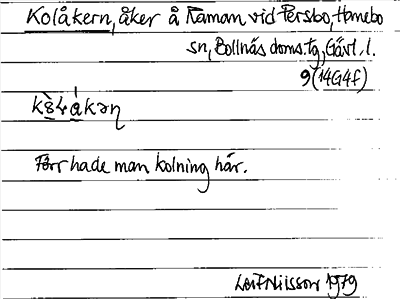 Kolåkern, åker å Raman vid Persbo, Hanebo
sn, Bollnäs doms.tg, Gävl. l.
9 (14G4f)
Förr hade man kolning här.
Leif Nilsson 1979